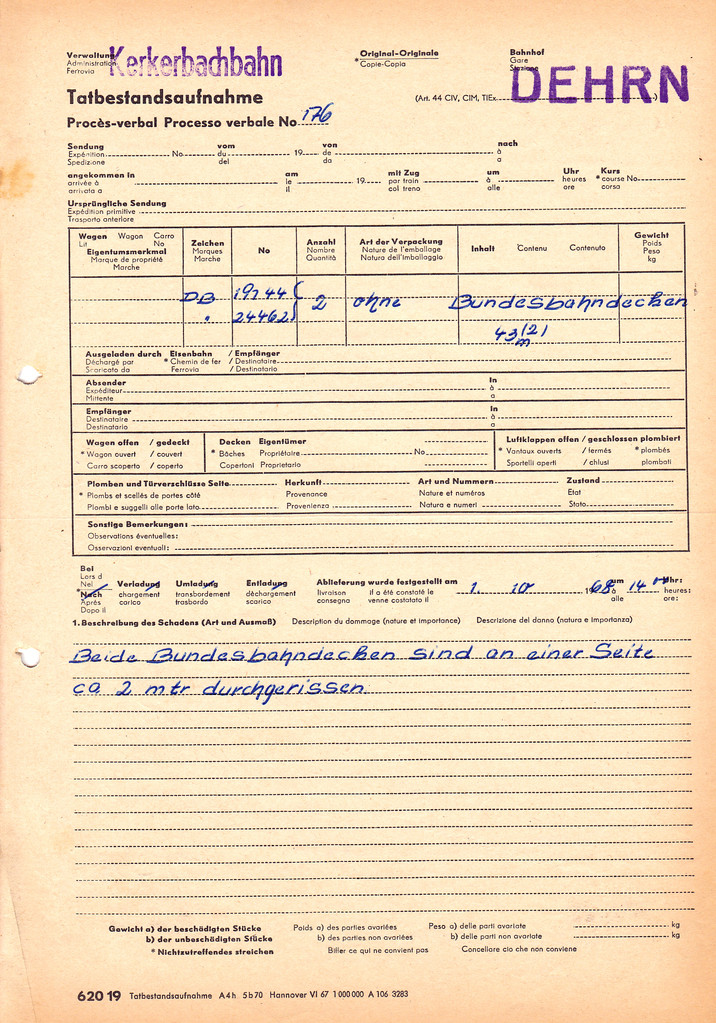 Verwaltung Kerkerbachbahn Original-Originale Bahnhof
Administration *Copie-Copia Gare
Ferrovia Stazione DEHRN
Tatbestandsaufnahme (Art. 44 CIV, CIM, TIEx )
Procès-verbal Processo verbale No 176
Sendung vom von nach
Expédition No du 19 de à
Spedizione del da a
angekommen in am mit Zug um Uhr Kurs
arrivée à le 19 par train à heures *course No
arrivata a il col treno alle ore corsa
Ursprüngliche Sendung
Expédition primitive
Trasporto anteriore
Wagen Wagon Carro Zeichen No Anzahl Art der Verpackung Inhalt Contenu Contenuto Gewicht
Lit No Marques Nombre Nature de l'emballage Poids
Eigentumsmerkmal Marche Quantità Natura dell'imballaggio Peso
Marque de propriété kg
Marche
DB 19744 2 ohne Bundesbahndecken
" 24462
Ausgeladen durch Eisenbahn / Empfänger
Déchargé par *Chemin de fer / Destinataire
Scaricato da Ferrovia / Destinatario
Absender In
Expéditeur à
Mittente a
Empfänger In
Destinataire à
Destinatario a
Wagen offen / gedeckt Decken Eigentümer Luftklappen offen / geschlossen plombiert
*Wagon ouvert / couvert *Bâches Propriétaire No *Vantaux ouverts / fermés *plombés
Carro scoperto / coperto Copertoni Proprietario Sportelli aperti / chiusi plombati
Plomben und Türverschlüsse Seite Herkunft Art und Nummern Zustand
*Plombs et scellés de portes côté Provenance Nature et numéros Etat
Plombi e suggelli alle porte lato Provenienza Natura e numeri Stato
Sonstige Bemerkungen:
Observations éventuelles:
Osservazioni eventuali:
Bei
Lors d
Nel Verladung Umladung Entladung Ablieferung wurde festgestellt am 1. 10 1968 um 14 00 Uhr:
*Nach chargement transbordement déchargement livraison il a été constaté le à heures:
Après carico trasbordo scarico consegna venne costatato il alle ore:
Dopo il
1. Beschreibung des Schadens (Art und Ausmaß) Description du dommage (nature et importance) Descrizione del danno (natura e importanza)
Beide Bundesbahndecken sind an einer Seite
ca 2 mtr durchgerissen
Gewicht a) der beschädigten Stücke Poids a) des parties avariées Peso a) delle parti avariate kg
b) der unbeschädigten Stücke b) des parties non avariées b) delle parti non avariate kg
* Nichtzutreffendes streichen Biffer ce qui ne convient pas Cancellare cio che non conviene
620 19 Tatbestandsaufnahme A4h 5b70 Hannover VI 67 1 000 000 A 106 3283